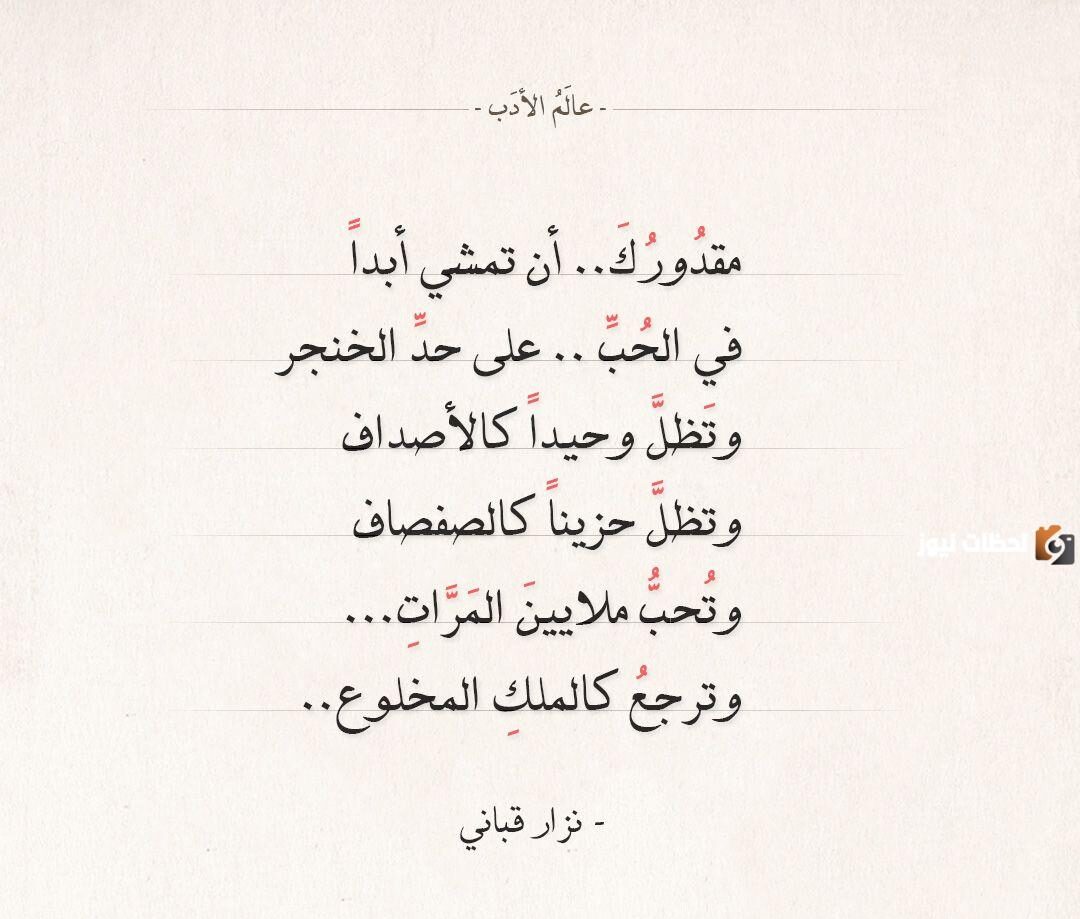 - عالَمُ الأدَب -
مقدُورُكَ.. أن تمشي أبداً
في الحُبِّ .. على حدِّ الخنجر
وتَظلَّ وحيداً كالأصداف
وتظلَّ حزيناً كالصفصاف
وتُحبُّ ملايينَ المَرَّاتِ...
وترجعُ كالملكِ المخلوع..
لحظات نيوز
- نزار قباني